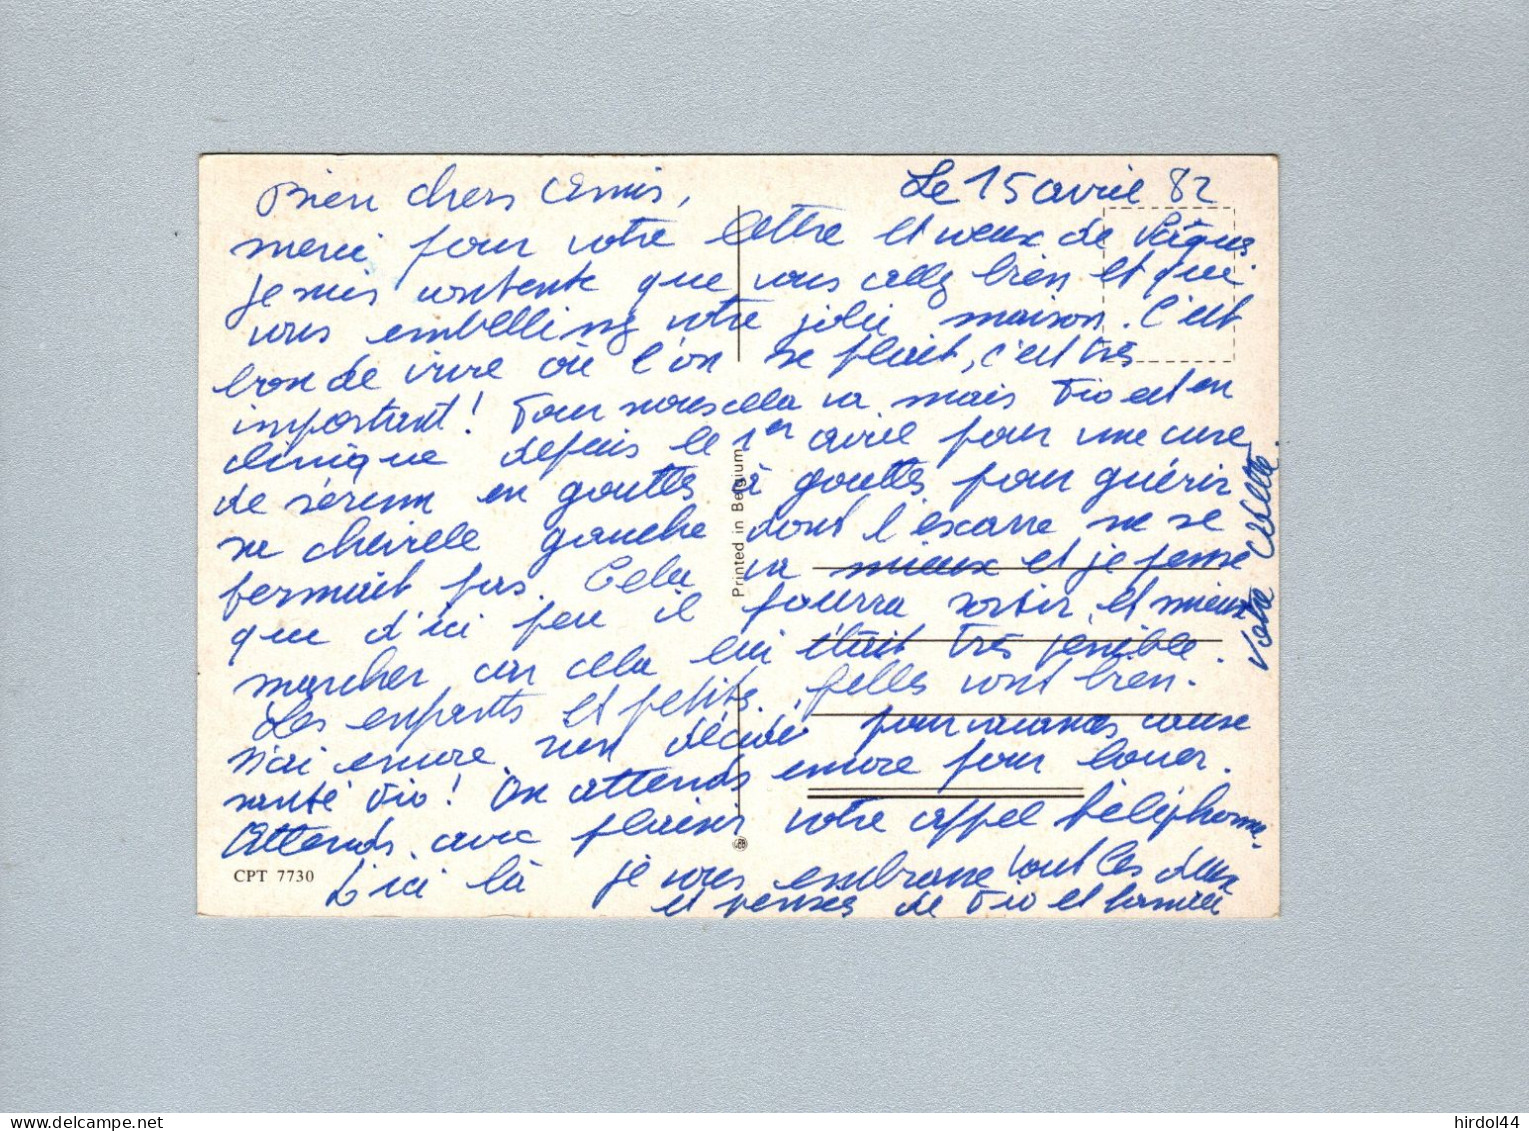 Le 15 avril 82
Bien chers Amis,
merci pour votre lettre et vœux de Pâques.
Je suis contente que vous allez bien et que
vous embellissez votre jolie maison. C'est
bon de vivre où l'on se plait, c'est très
important! Pour nous cela va, mais Vio est en
clinique depuis le 1er avril pour une cure
de sérum en gouttes à gouttes pour guérir
sa cheville gauche dont l'escarre ne se
fermait pas. Cela va mieux et je pense
que d'ici peu il pourra sortir, et mieux
marcher car cela lui était très pénible.
Les enfants et petits. felles vont bien.
N'ai encore rien décidé pour vacances cause
santé Vio! On attends encore pour louer.
Attends avec plaisir votre appel téléphone.
D'ici là je vous embrasse tout les deux
et pensées de Vio et famille
Votre
Printed in Belgium
CPT 7730
delcampe.net
hirdol44